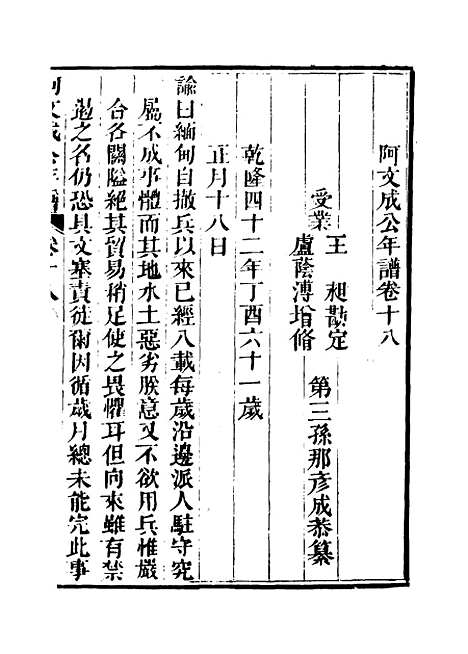 阿文成公年譜卷十八
第三孫那彥成恭纂
受業
王　昶勘定
盧蔭溥增修
乾隆四十二年丁酉六十一歲
正月十八日
諭曰緬甸自撤兵以來已經八載每歲沿邊派人駐守究
屬不成事體而其地水土惡劣朕意又不欲用兵惟嚴
合各關隘絕其貿易稍足使之畏懼耳但向來雖有禁
遏之名仍恐具文塞責徒爾因循歲月總未能完此事
阿文成公年譜
卷十八